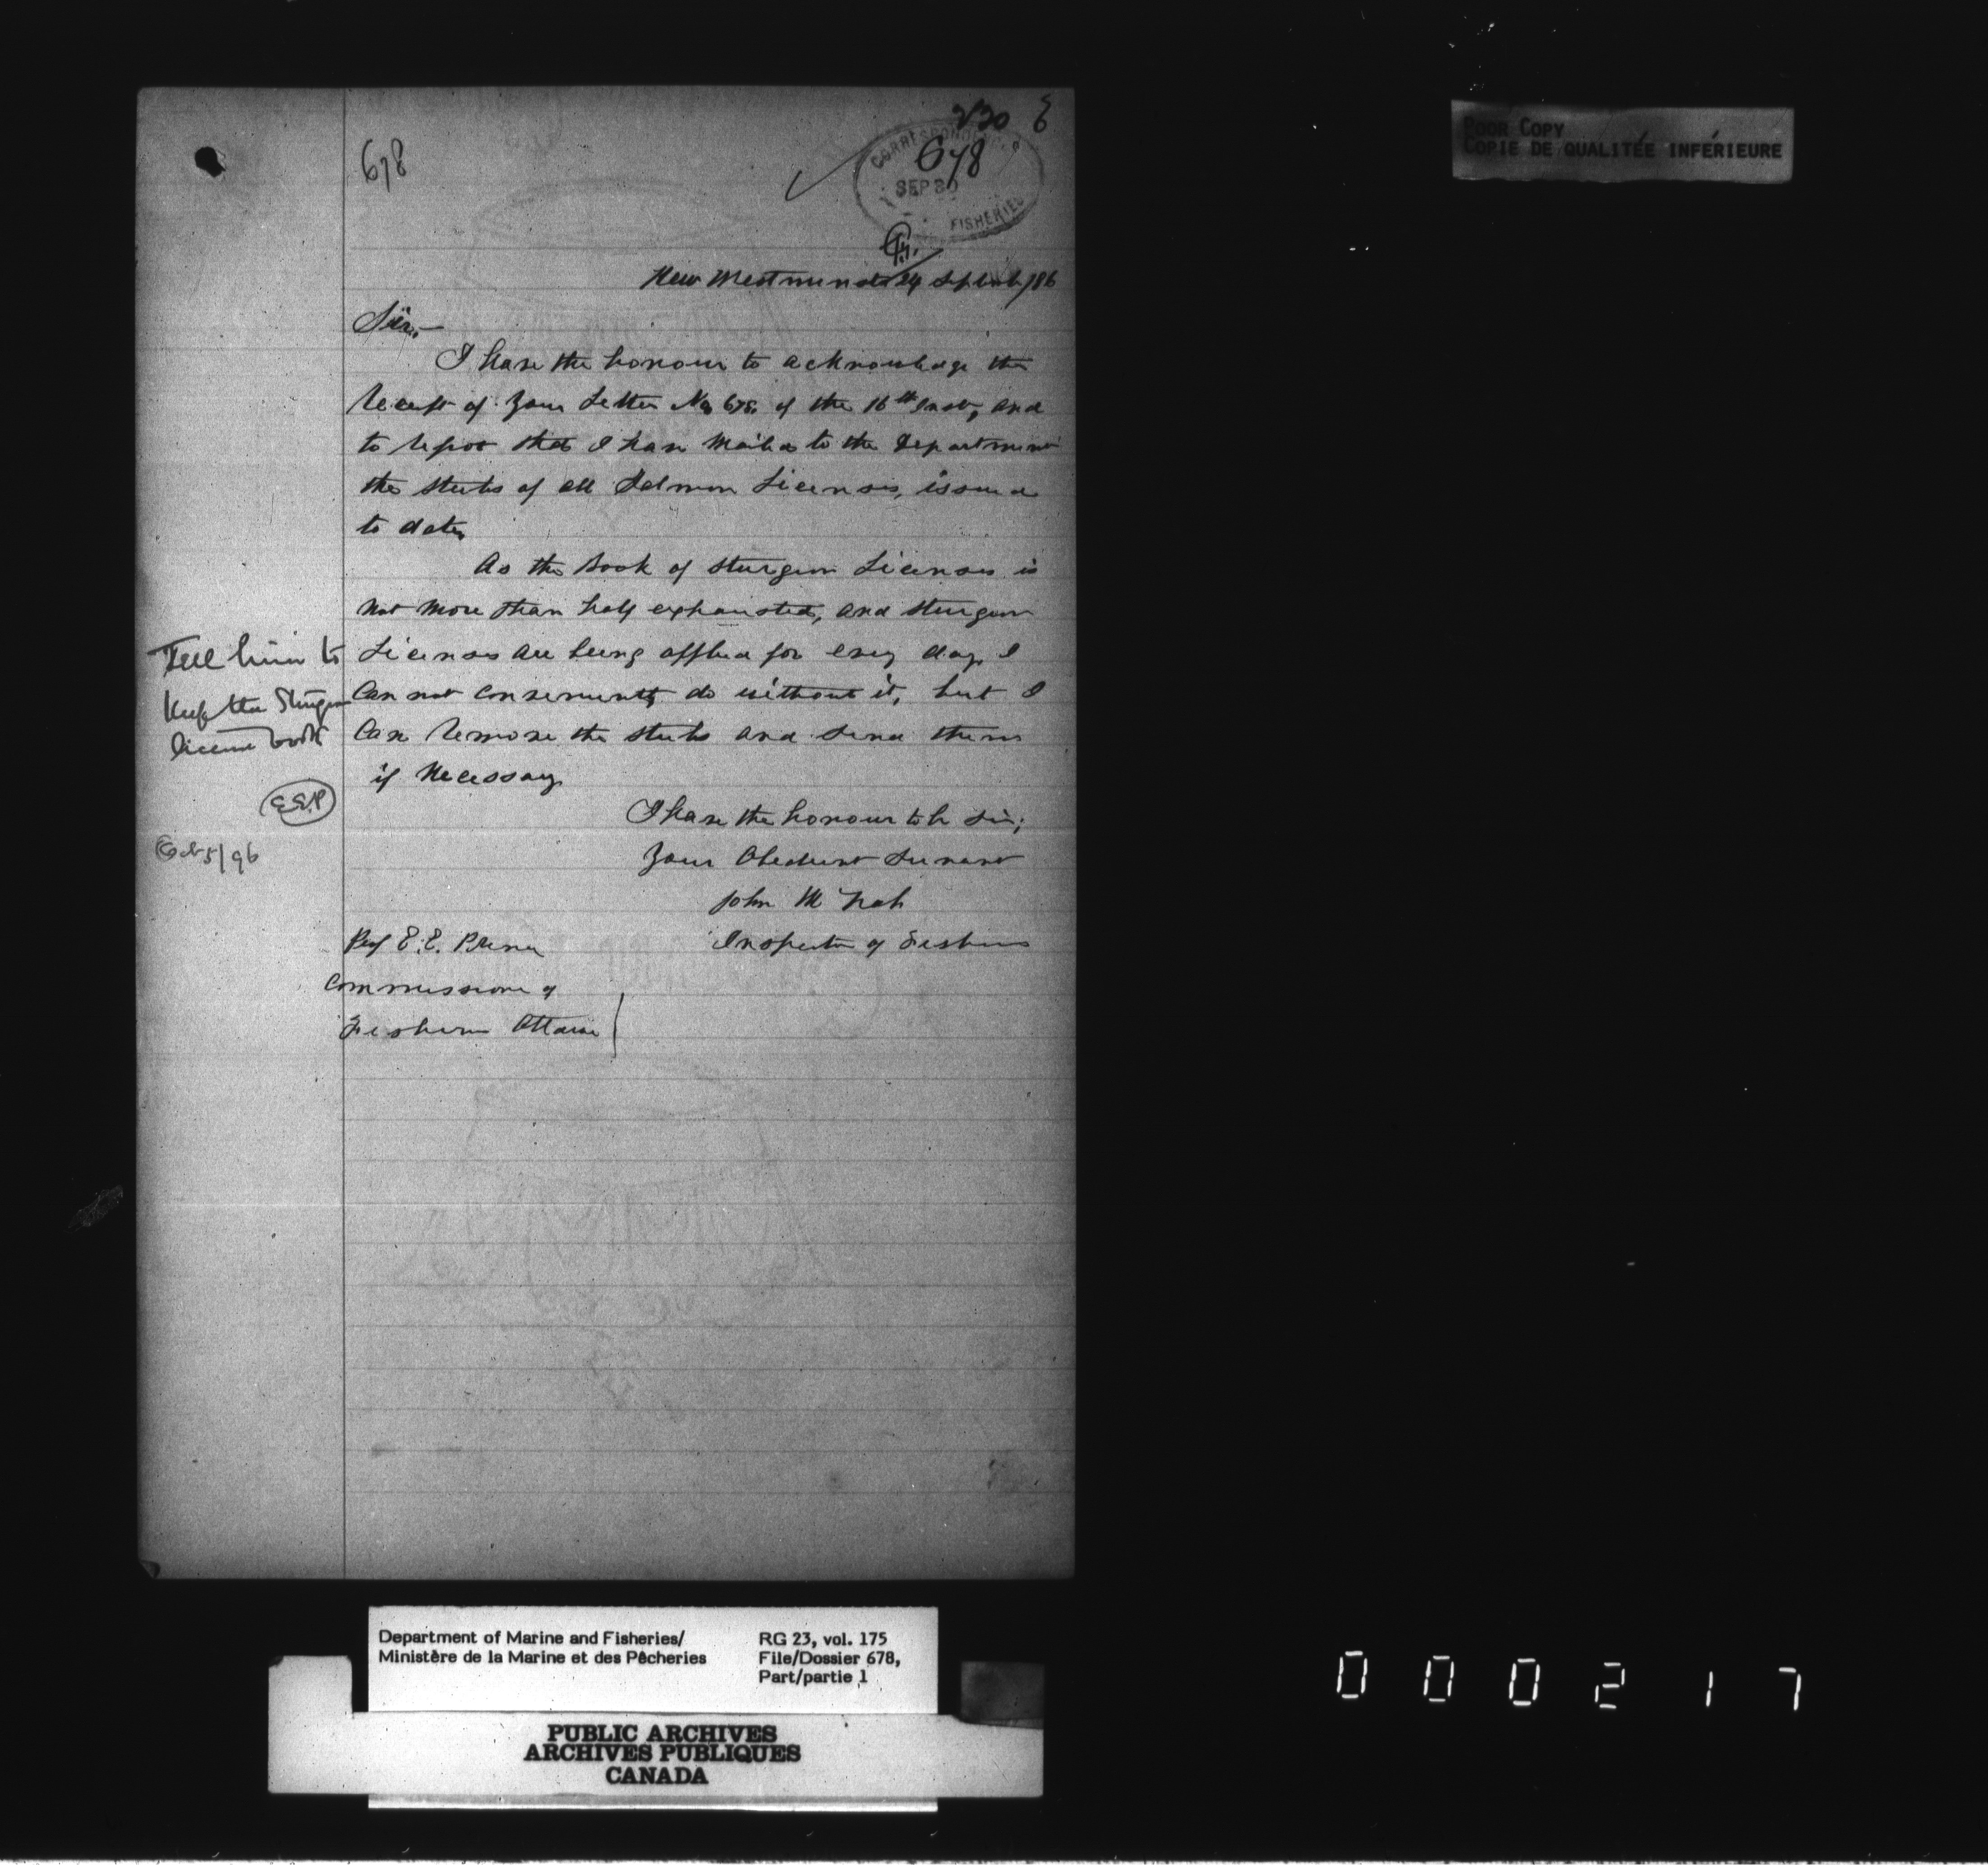 230
678
CORRESPONDENCE
678
SEP 30
FISHERIES
POOR COPY
COPIE DE QUALITÉE INFÉRIEURE
New Westminster 24 Septemb/96
Sir,—
I have the honour to acknowledge the
receipt of your Letter No 678 of the 16th Inst, and
to report that I have mailed to the Department
the stubs of all Salmon Licenses, issued
to date,
As the Book of Sturgeon Licenses is
not more than half exhausted, and sturgeon
Licenses are being applied for every day I
can not conveniently do without it, but I
can remove the stubs and send them
if necessary
Tell him to
keep the Sturgeon
license book
E.E.P.
Oct 5/96
I have the honour to be Sir;
Your Obedient Servant
John McNab
Inspector of Fisheries
Prof E.E. Prince
Commissioner of
Fisheries Ottawa
Department of Marine and Fisheries/
Ministère de la Marine et des Pêcheries
RG 23, vol. 175
File/Dossier 678,
Part/partie 1
PUBLIC ARCHIVES
ARCHIVES PUBLIQUES
CANADA
000217